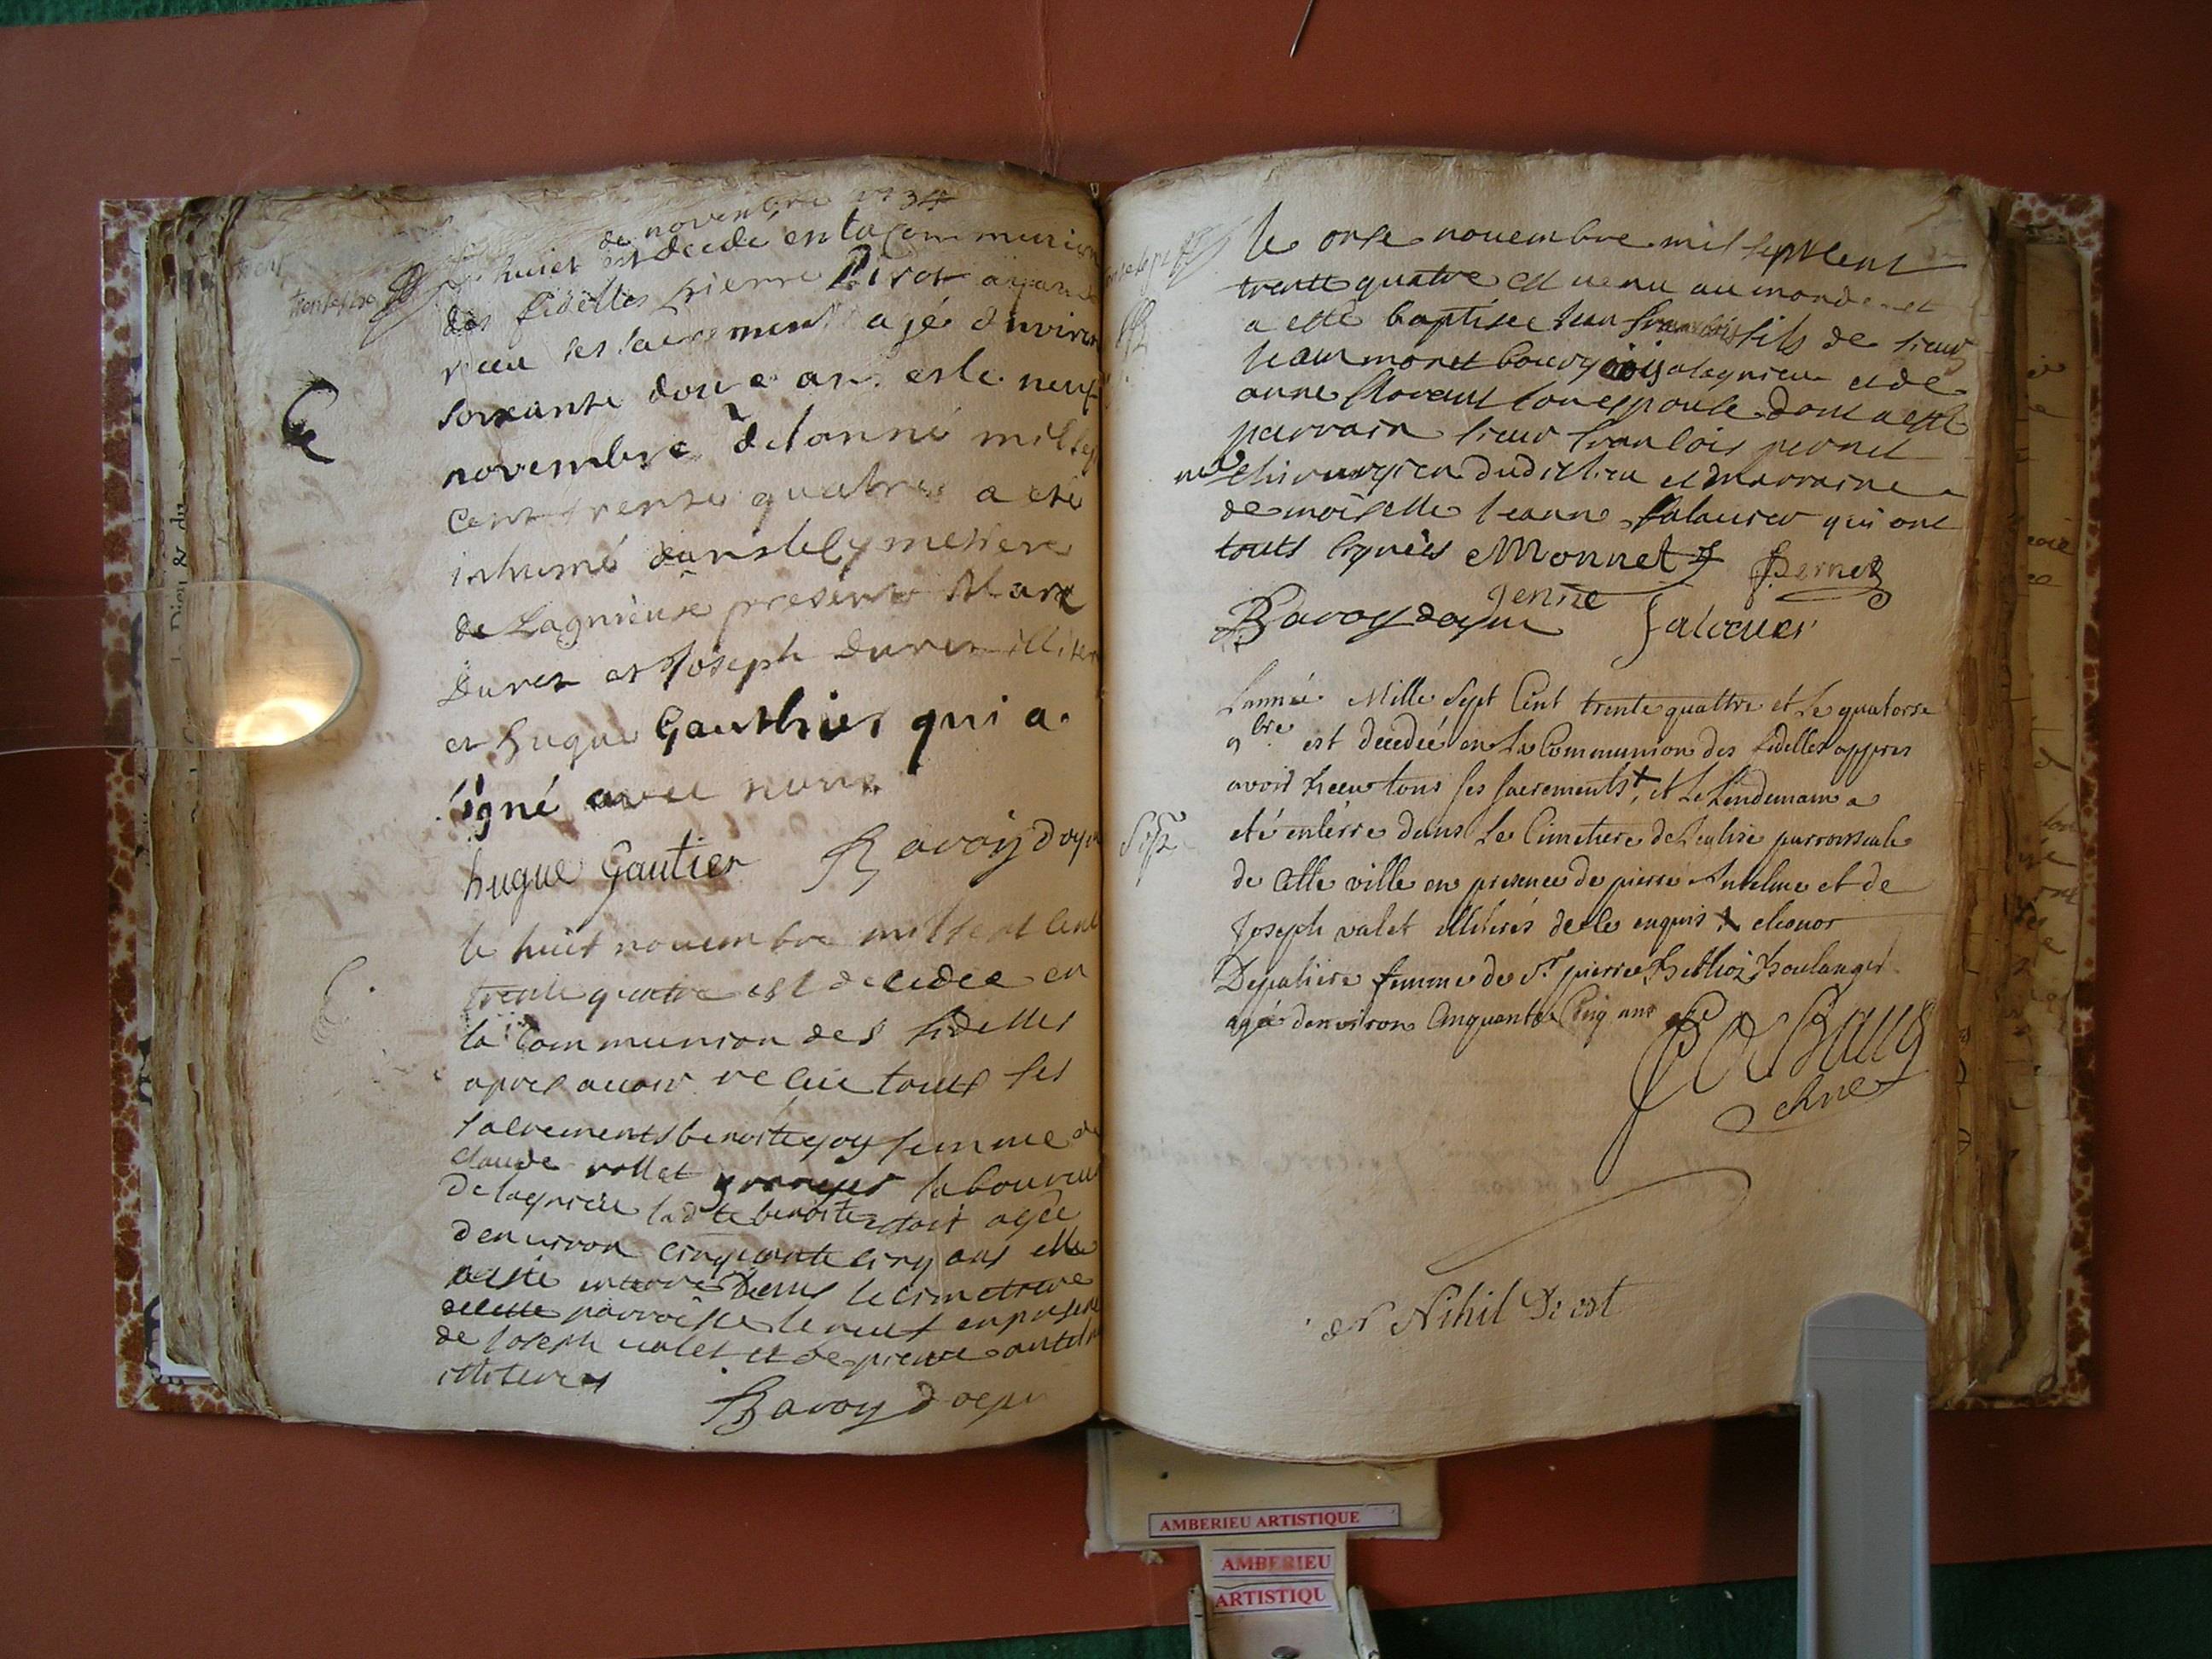 de novembre 1734
huict est decedé en la communion
des fidelles pierre Pirot ayan
receu ses sacrement agé d'environ
soixante douze ans. et le neuf
novembre de lanné mil sep
cent trente quatres a esté
inhumé dans le Cymetiere
de Lagnieux présent Marc
Duret et Joseph Duret illiter
et hugue Gauthier qui a
signé avec nous
hugue Gautier Ravoy doyen
le huit novembre mil sept cent
trente quatre est decedee en
la Communion des fidelles
apres avoir receu touts ses
sacrements benoite goy femme de
claude vollet granger laboureur
de lagnieu ladte benoite estoit agée
denviron cinquante cinq ans elle
a esté enterré dans le cimetiere
de cette parroisse le neuf en presence
de Joseph valet et de pierre antelme
illiterés
Ravoy doyen
le onse novembre mil sept Cent
trente quatre est venu au monde et
a esté baptisée Jean francois fils de sieur
Jean monet bourgeois a lagnieu et de
anne son espouse dont a esté
parrain sieur francois pernet
me chirurgien dudit lieu et marraine
demoiselle Jeanne falavier qui ont
touts signés Monnet Pernet
Ravoy doyen Jenne falavier
Lannée Mille Sept Cent trente quattre et Le quatorse
9bre est decedeé en La Communion des fidelles appres
avoir Receu tous ses sacrements +, et Le Lendemain a
eté enterre dans Le Cimetiere de Leglise parroissiale
de Cette ville en presence de pierre Antelme et de
Joseph valet illiterés de ce enquis + eleonor
Depaliere femme de Sr pierre Boulanger
agée denviron Cinquante Cinq ans
chne
et Nihil De est
AMBERIEU ARTISTIQUE
AMBERIEU
ARTISTIQU